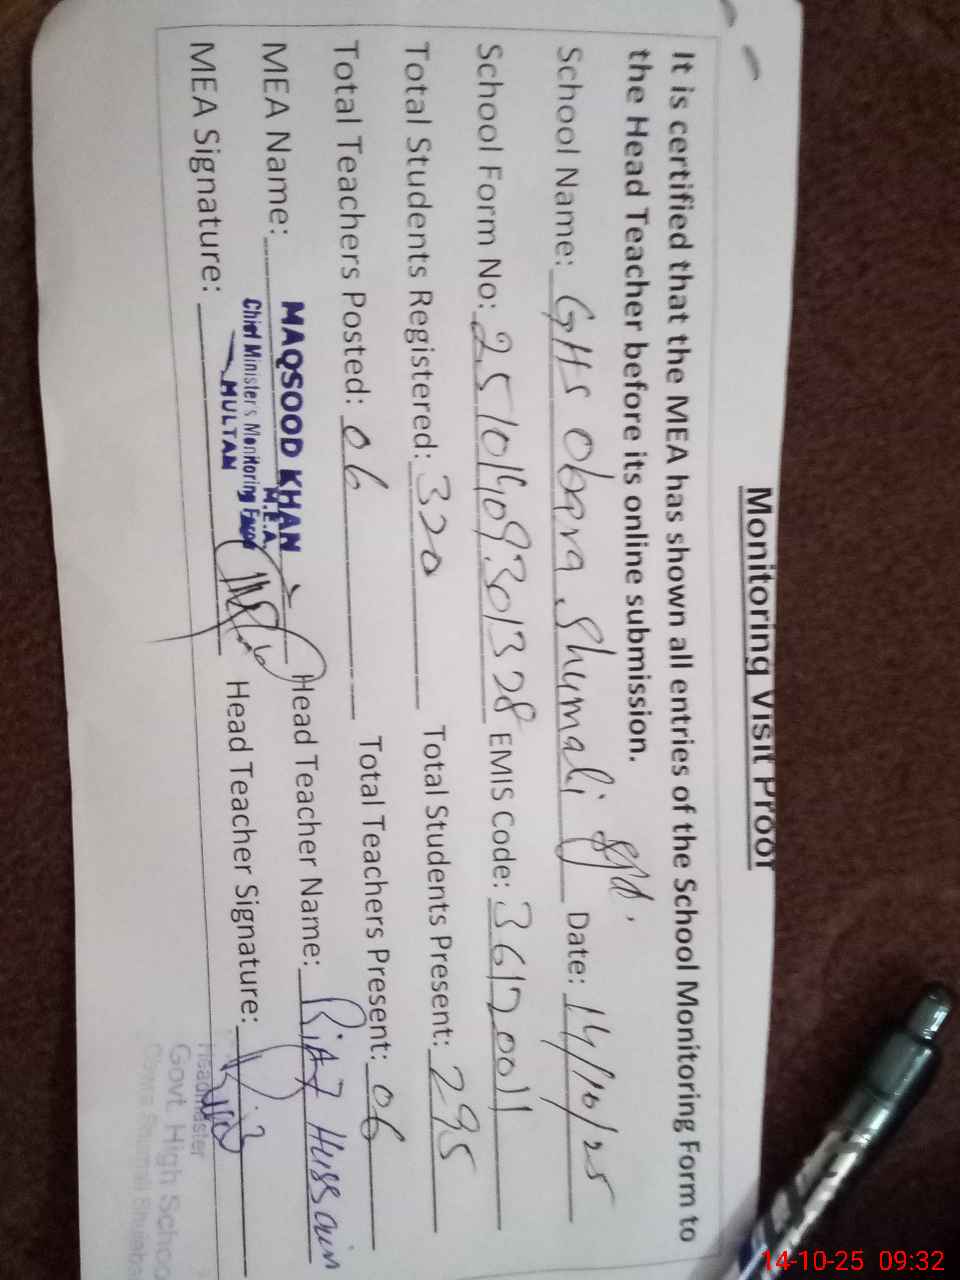 Monitoring Visit Proof
It is certified that the MEA has shown all entries of the School Monitoring Form to
the Head Teacher before its online submission.
School Name: GHS Obara Shumali Sjd. Date: 14/10/25
School Form No: 25101409301328 EMIS Code: 36120011
Total Students Registered: 320 Total Students Present: 295
Total Teachers Posted: 06 Total Teachers Present: 06
MEA Name: MAQSOOD KHAN Head Teacher Name: Riaz Hussain
M.E.A.
Chief Minister's Monitoring Force
MULTAN
MEA Signature: Head Teacher Signature:
Headmaster
Govt. High School
14-10-25 09:32